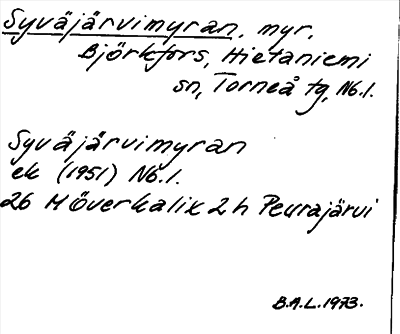 Syväjärvimyran, myr,
Björkfors, Hietaniemi
sn, Torneå tg, Nb.l.
Syväjärvimyran
ek (1951) Nb.l.
26 M Överkalix 2 h Peurajärvi
B.A.L. 1973.